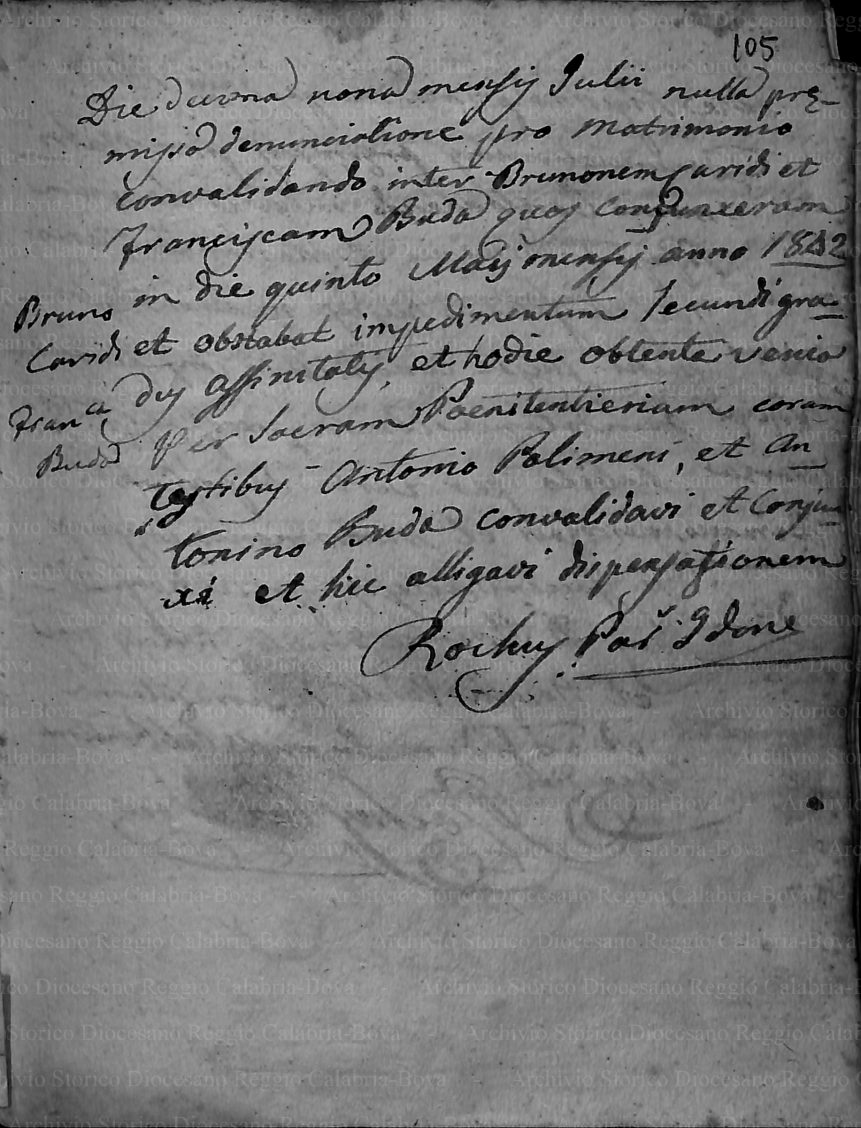 105
Die decima nona mensis Julii nulla prę-
missa denunciatione pro matrimonio
convalidando inter Brunonem Caridi et
Franciscam Buda quos conjunxeram
in die quinto Maij mensis anno 1842
et obstabat impedimentum secundi gra-
dus affinitatis, et hodie obtenta venia
per Sacram Poenitentieriam coram
testibus Antonio Polimeni, et An-
tonino Buda convalidavi et conjun-
xi et hic alligavi dispensationem
Rochus Par. Idone
Bruno
Caridi
Fran.ca
Buda
Archivio Storico Diocesano Reggio Calabria-Bova